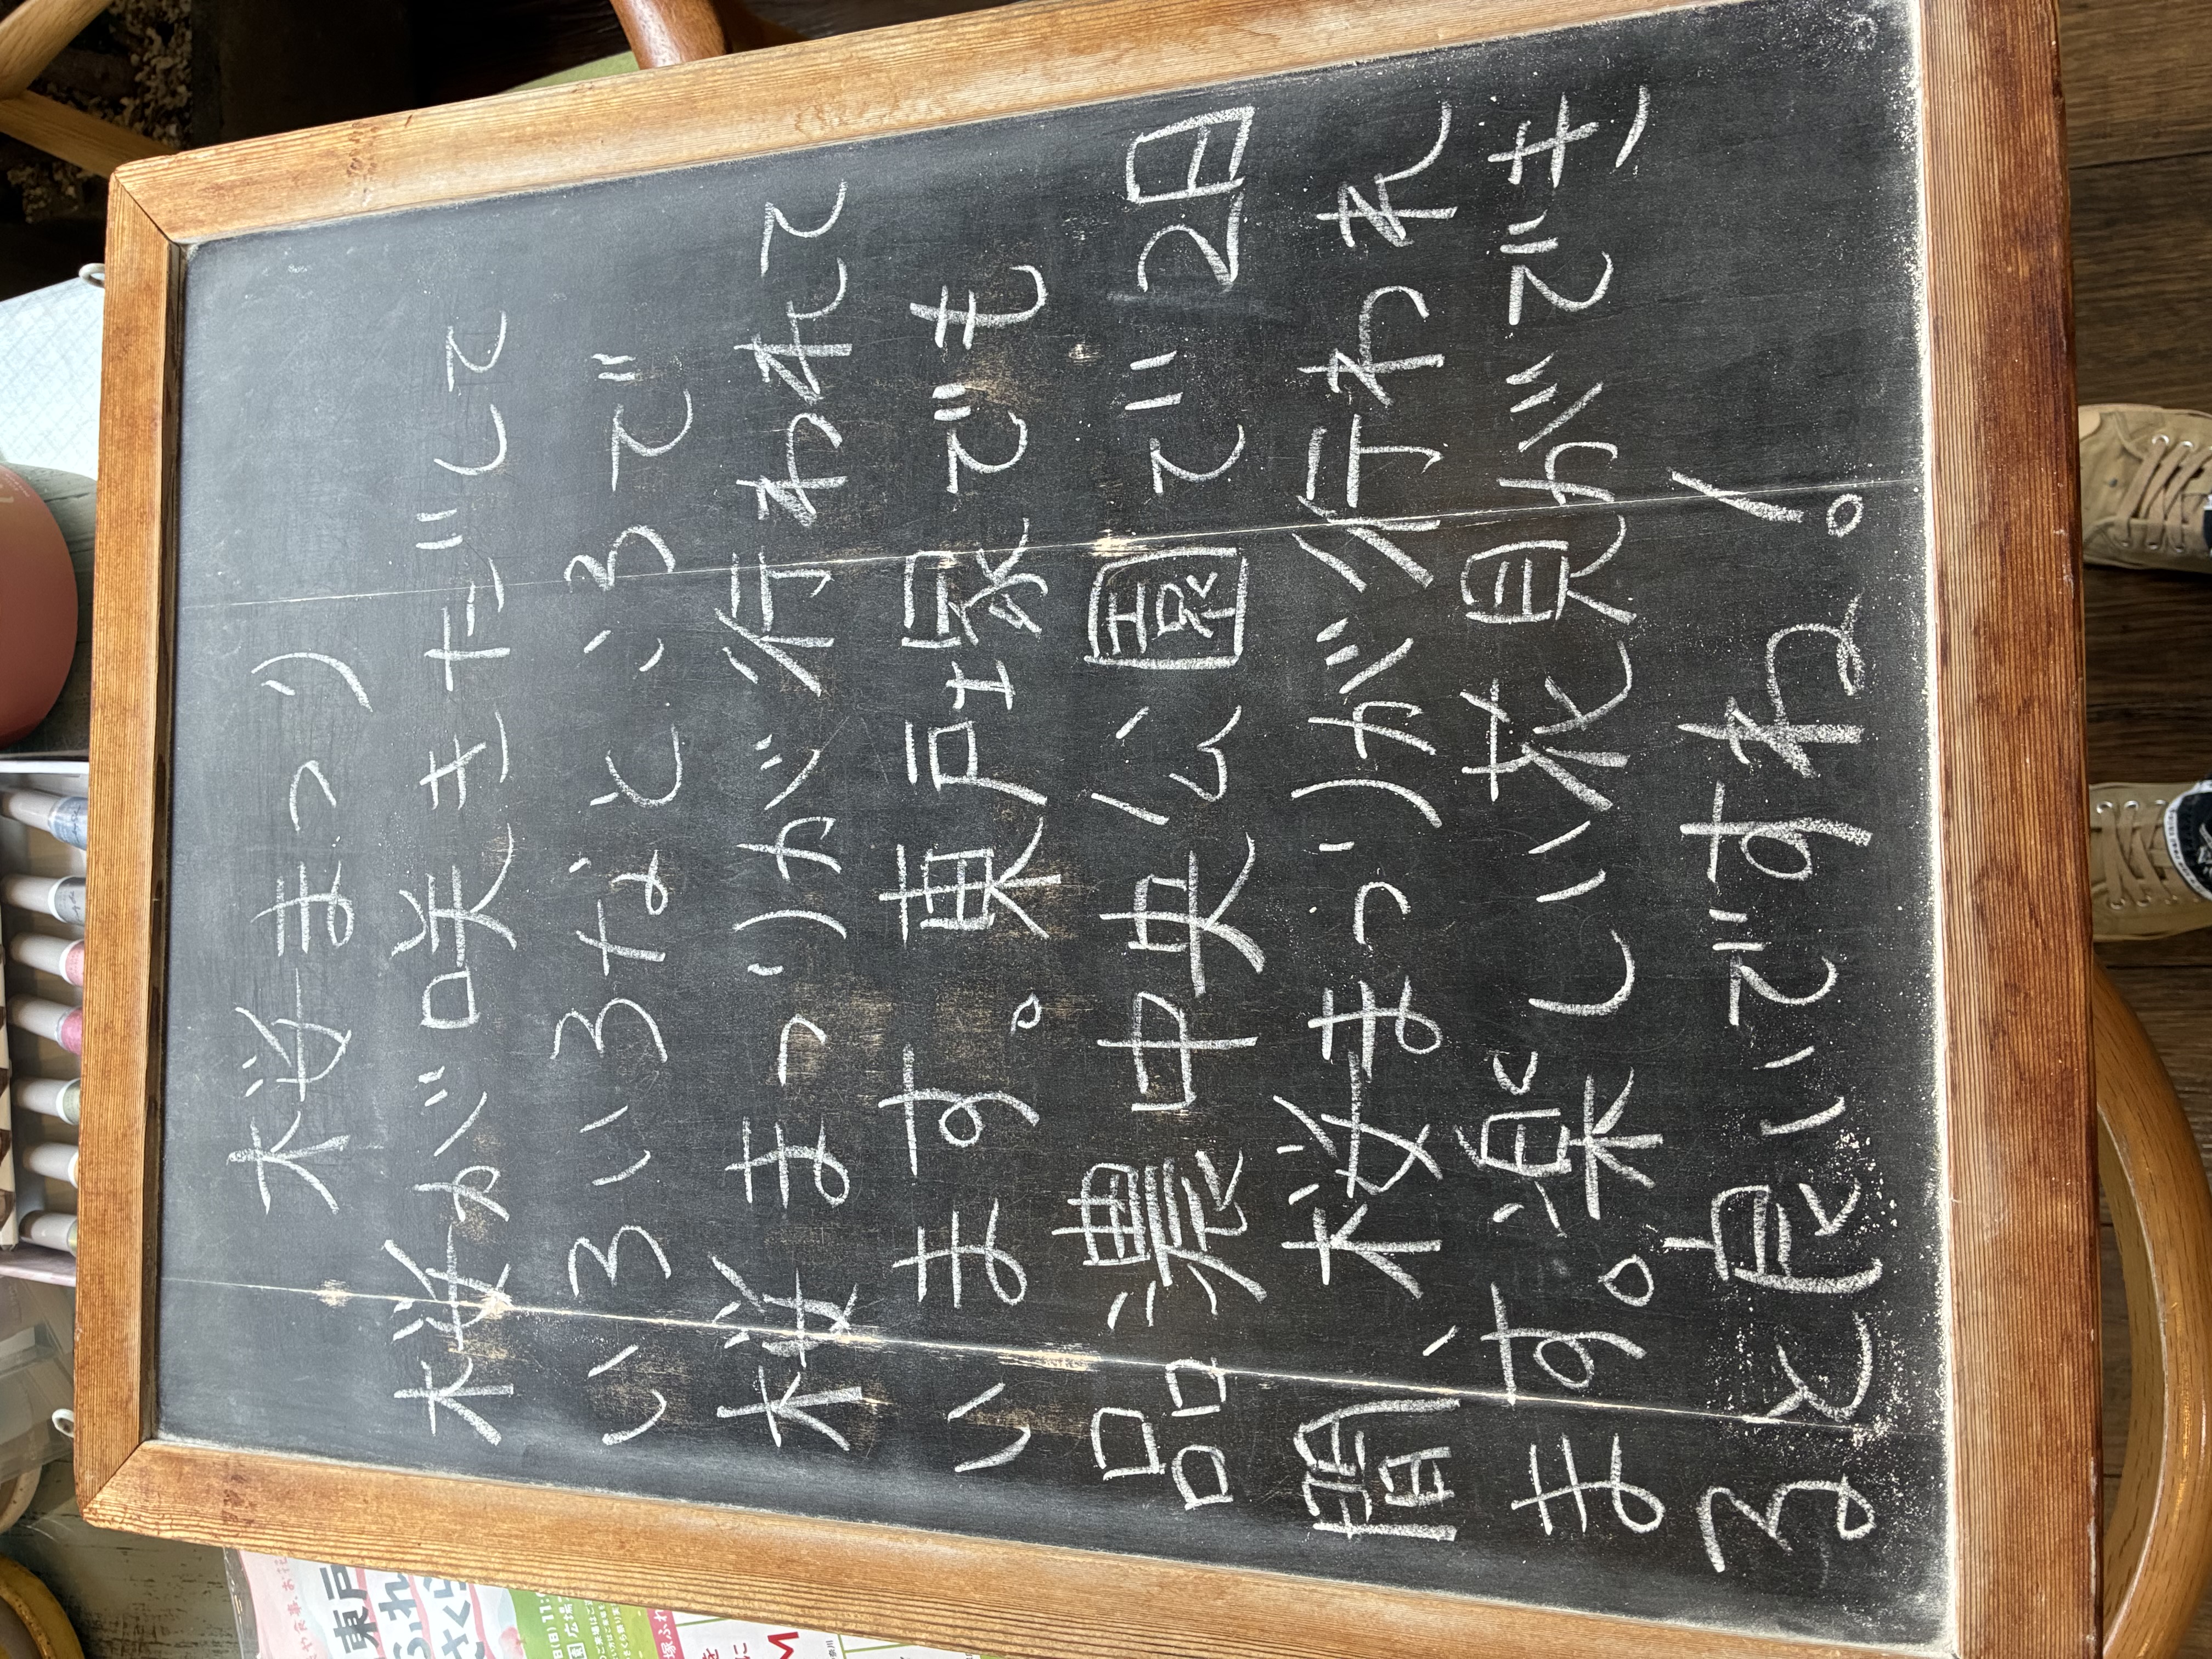 桜まつり
桜が咲きだして
いろいろなところで
桜まつりが行われて
います。東戸塚でも
品濃中央公園で2日
間、桜まつりが行われ
ます。楽しい花見ができ
ると良いですね。
東戸
ふれ
さくら